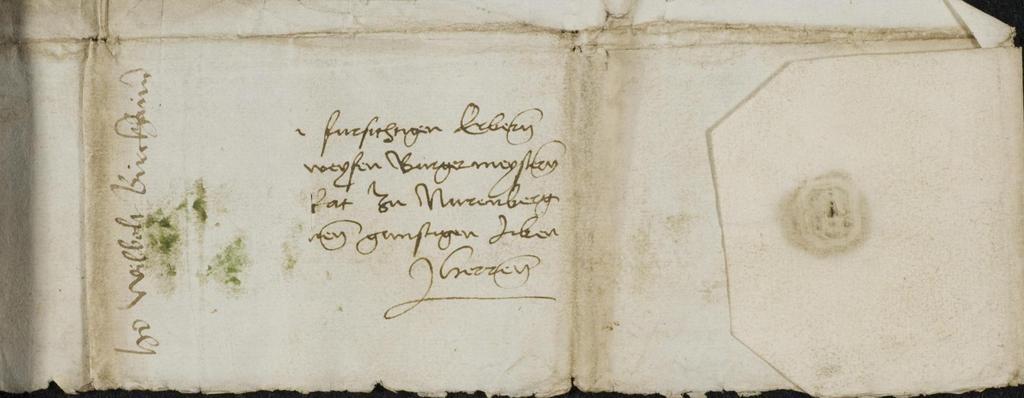 n fursichtigen Erbern
weysen Burgermeystern
Rat zu Nurenberg
nen gunstigen lieben
herren
her Wilbolt Pirckheimer